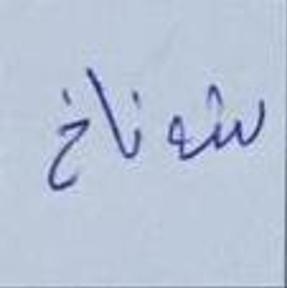 شوناخ